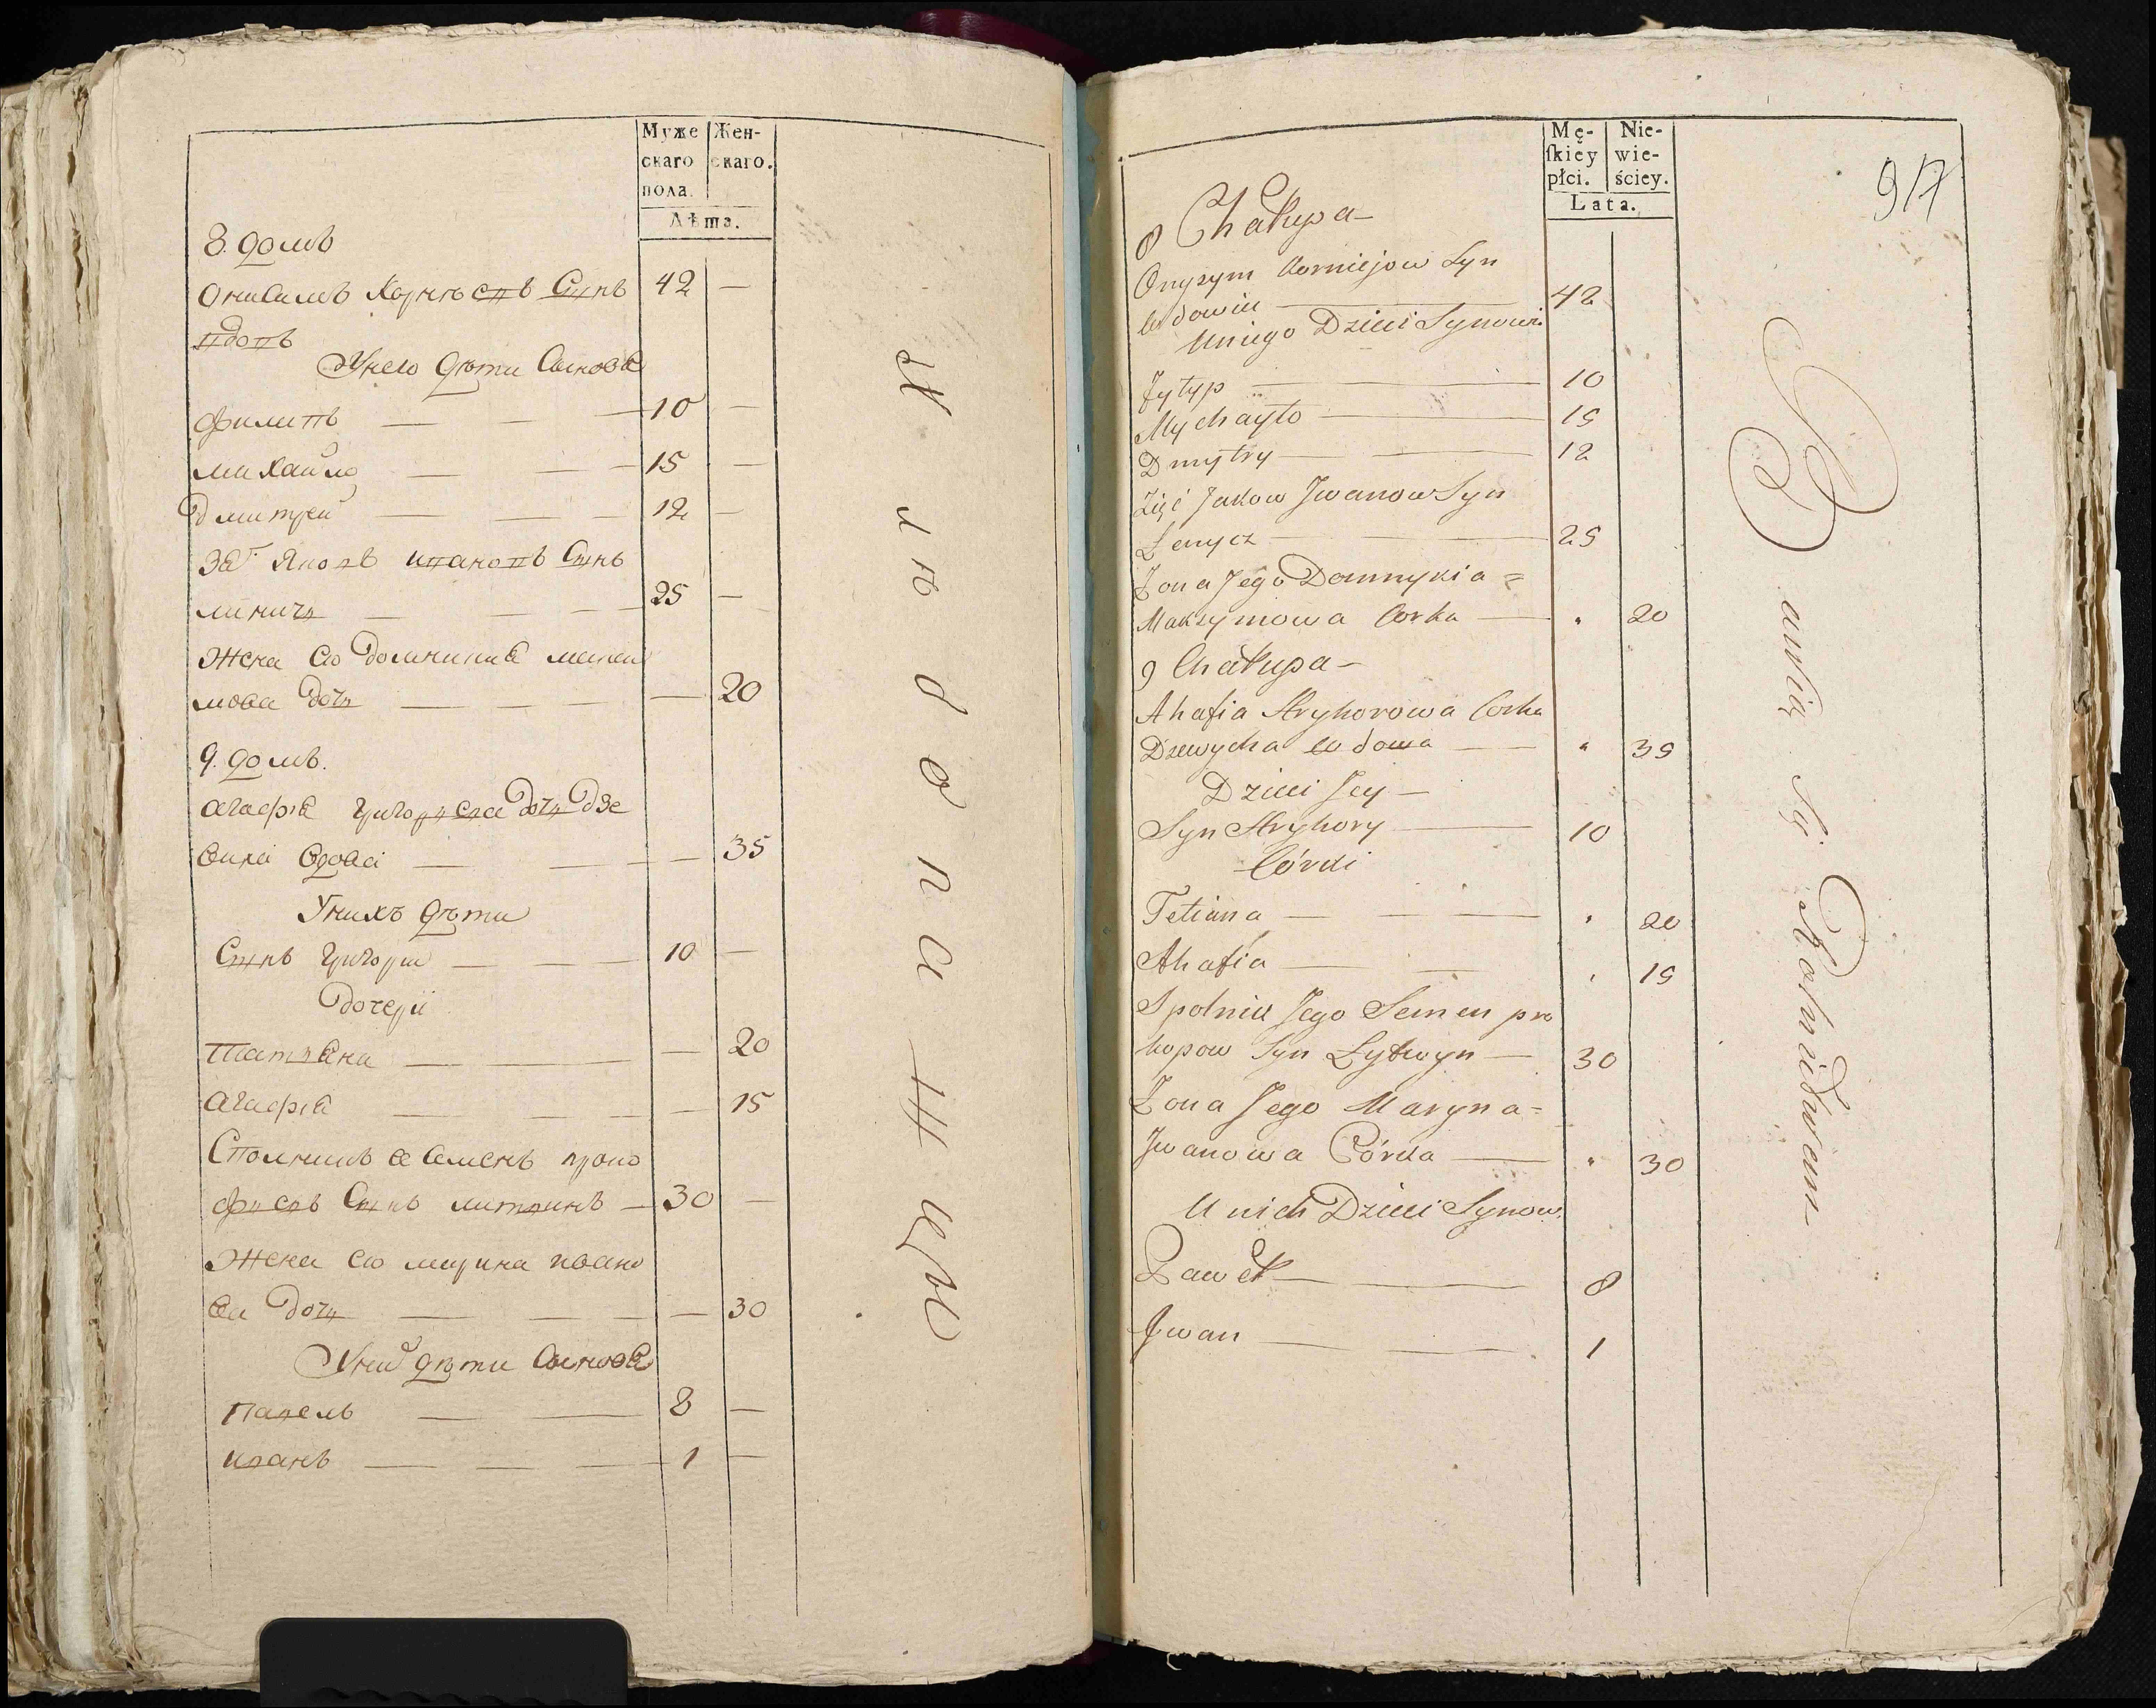 Муже
скаго
пола.
Жен-
скаго.
Лѣта.
8. домъ
Онисимъ Корнѣевъ Сынъ 42 —
вдовъ
У него дѣти Сыновя
Филипъ — — — 10 —
Михайло — — — 15 —
Дмитрей — — — 12 —
Зят. Яковъ Ивановъ Сынъ
— — — 25 —
Жена его Домникия
мова дочь — — — — 20
9. домъ.
Агафия Григорьева дочь Дзе
виха вдова — — — 35
У нихъ дѣти
Сынъ Григори — — — 10 —
дочери
Татьяна — — — 20
Агафия — — — — 15
Семенъ проко
Сынъ литвинъ — 30 —
Жена его марина ивано
ва дочь — — — — 30
У них дѣти Сыновя
Павелъ — — 8 —
Иванъ — — — 1 —
Mę-
ſkiéy
płci.
Nie-
wie-
ściey.
Lata.
917
8 Chałupa —
Onyzym Korniejow Syn
Wdowiec — 42
U niego Dzieci Synowie
Fylyp — 10
Mychayło — 15
Dmytry — 12
Zięć Jakow Jwanow Syn
— 25
Żona Jego Domnykia =
Maksymowa Corka — " 20
9 Chałupa —
Ahafia Hryhorowa Corka
Dziewycha Wdowa — " 35
Dzieci Jey —
Syn Hryhory — 10
Córki
Tetiana — — — " 20
Ahafia — — " 15
Spolnik Jego Semen pro
kopow Syn Lytwyn — 30
Żona Jego Maryna =
Jwanowa Córka — " 30
U nich Dzieci Synow.
Paweł — — 8
Jwan — — 1